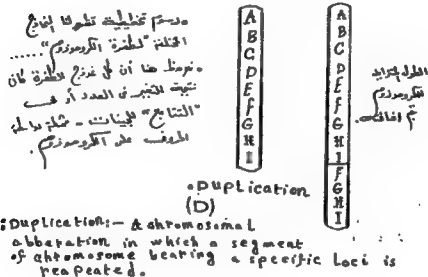 رسوم تخطيطية تظهر لنا النماذج
المختلفة "لطفرة الكروموزوم" .....
ونلاحظ هنا أن كل نموذج للطفرة كان
نتيجة للتغير في العدد أو في
"التتابع" للجينات - ممثلة بدلالة
الحروف على الكروموزوم.
A
B
C
D
E
F
G
H
I
A
B
C
D
E
F
G
H
I
F
G
H
I
الطول المتزايد
للكروموزوم
•Duplication
(D)
:Duplication:- A chromosomal
abberation in which a segment
of chromosome bearing a specific Loci is
reapeated.